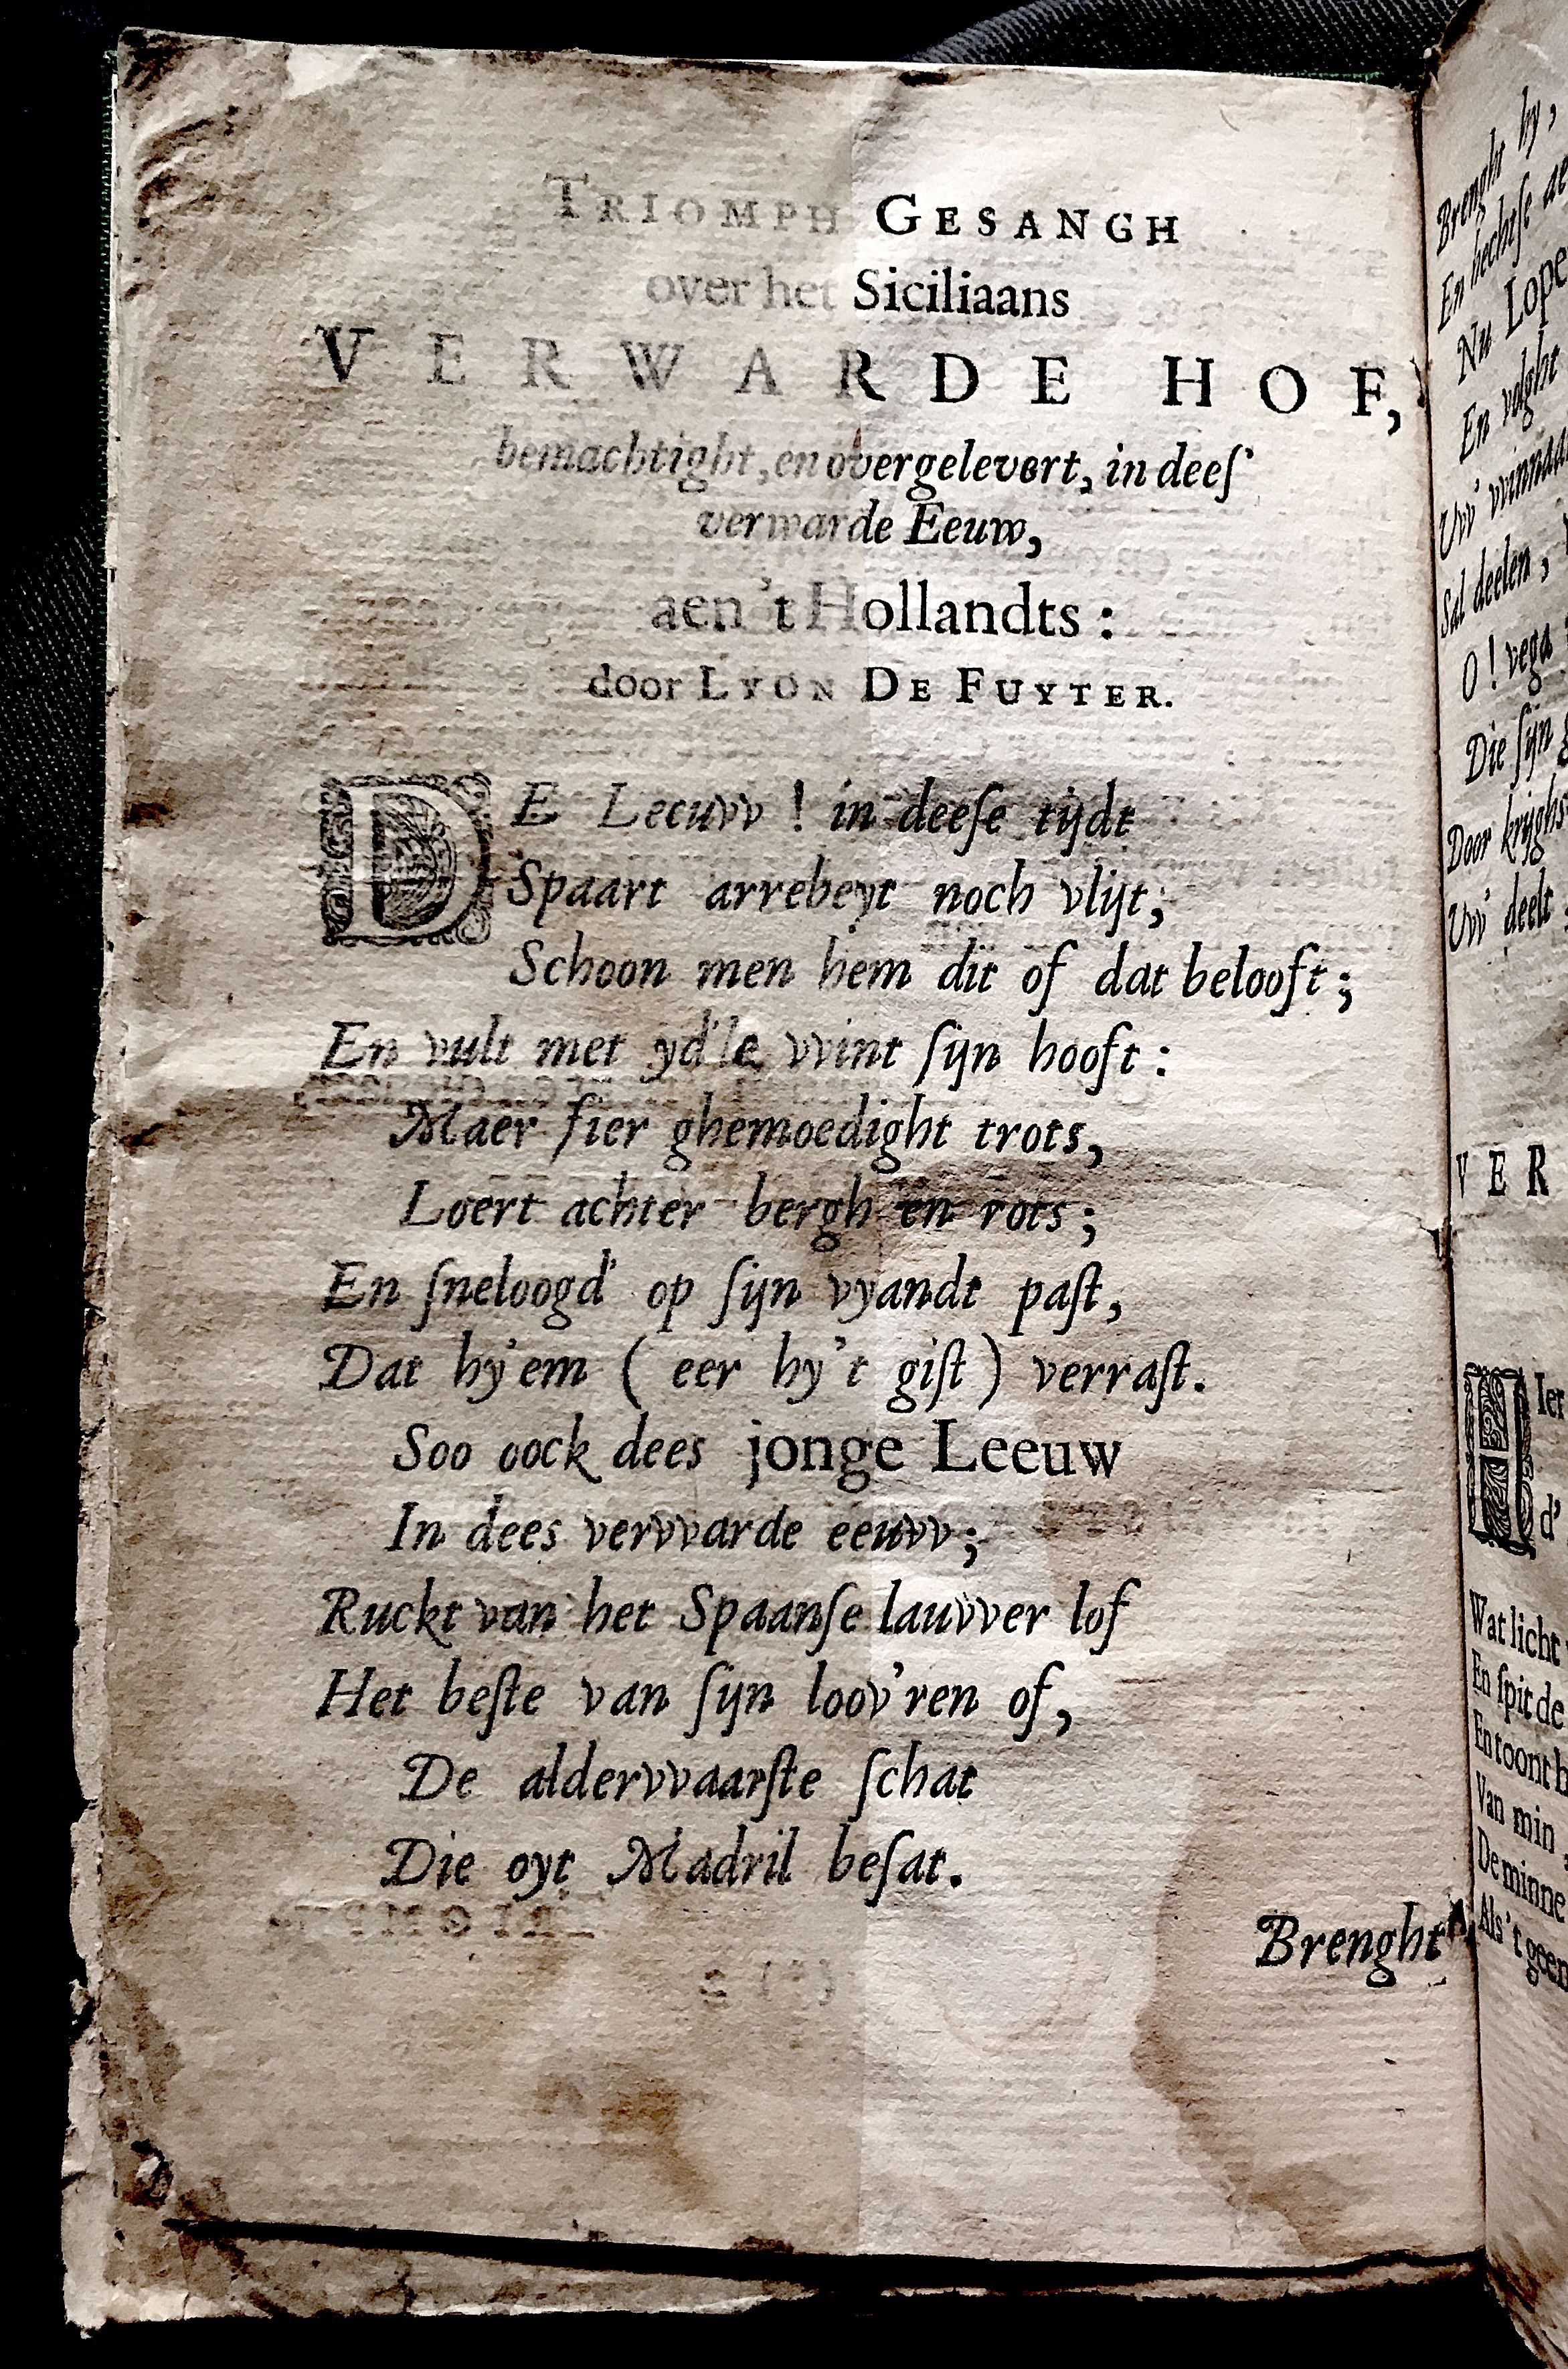 TRIOMPH GESANGH
over het Siciliaans
VERWARDE HOF,
bemachtight, en overgelevert, in deeſ'
verwarde Eeuw,
aen 't Hollandts :
door LYON DE FUYTER.
DE Leeuvv ! in deeſe tijdt
Spaart arrebeyt noch vlijt;
Schoon men hem dit of dat belooft;
En vult met yd'le vvint ſijn hooft :
Maer fier ghemoedight trots,
Loert achter bergh en rots;
En ſneloogd' op ſijn vyandt paſt,
Dat hy'em ( eer hy't giſt ) verraſt.
Soo oock dees jonge Leeuw
In dees vervvarde eeuvv;
Ruckt van het Spaanſe lauvver lof
Het beſte van ſijn loov'ren of,
De aldervvaarſte ſchat
Die oyt Madril beſat.
Brenght
Brenght hy,
En hechtſe
Nu Lope
En volght
Uvv'
Sal deelen,
O ! vega
Die ſijn
Door
Uvv' deelt
VER
HIer
d'
Wat licht
En ſpit de
En toont
Van min
De minne
Als 't geen